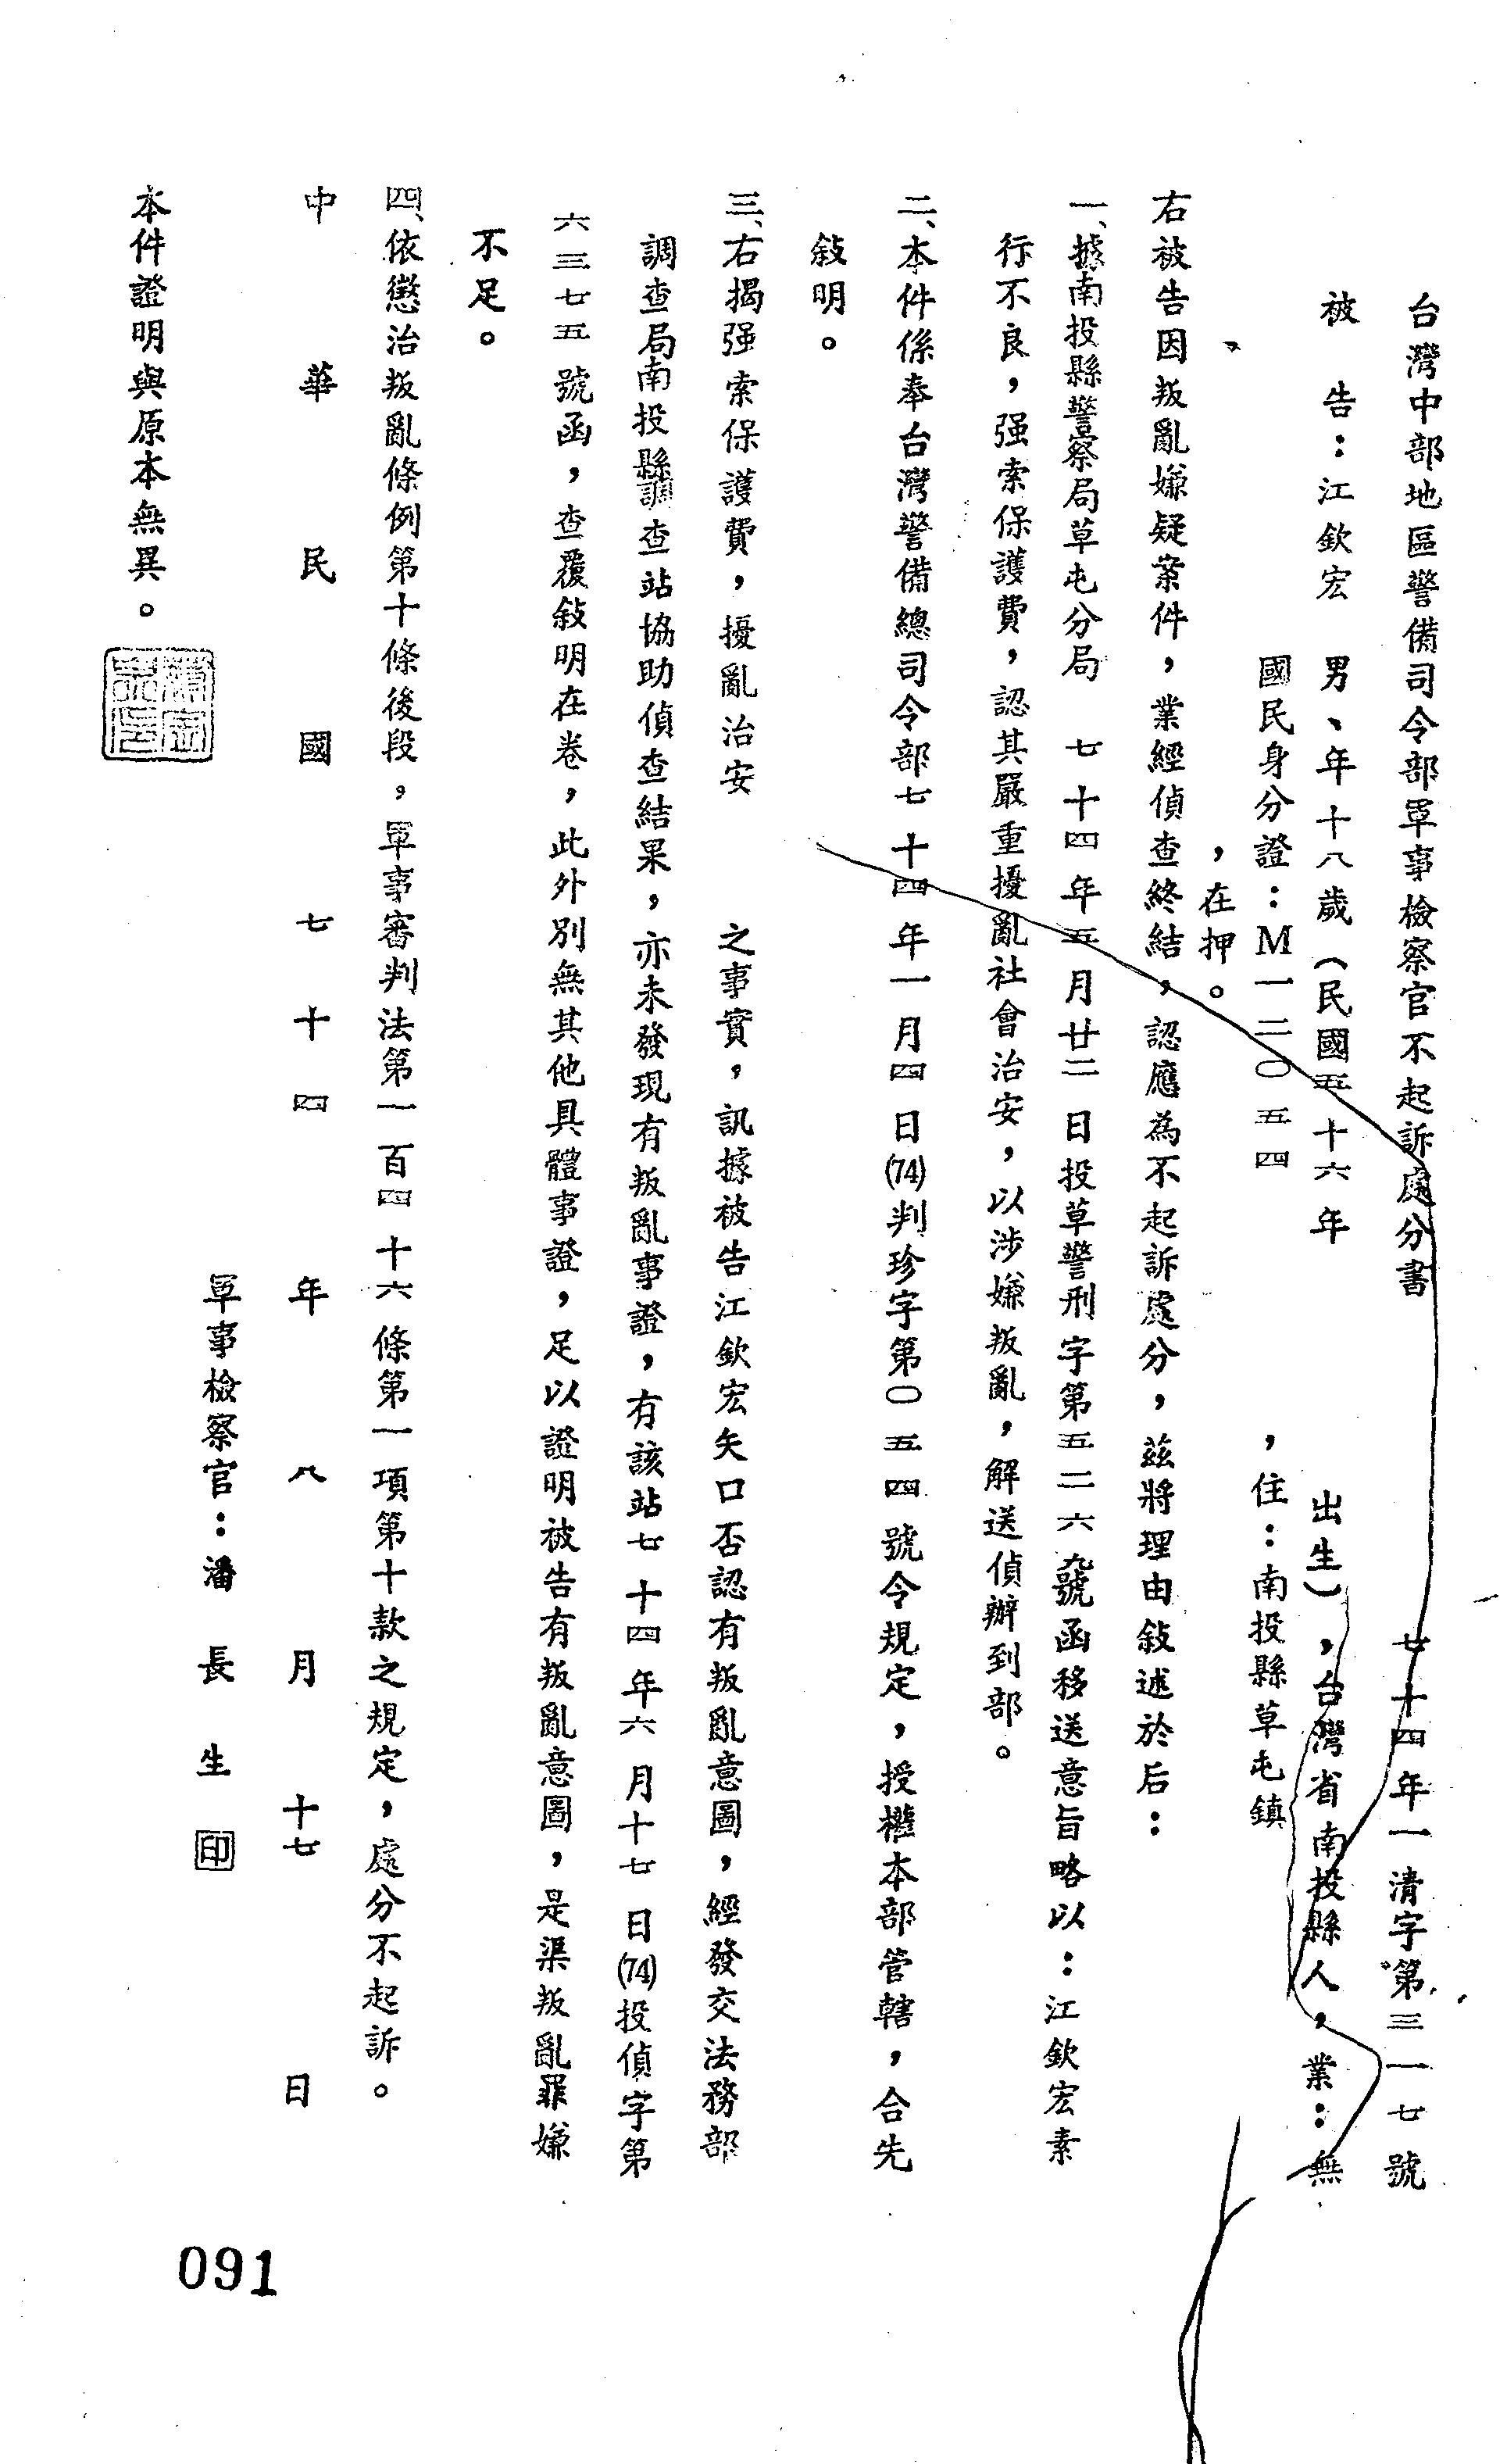 台灣中部地區警備司令部軍事檢察官不起訴處分書
七十四年一清字第三一七號
被告：江欽宏 男、年十八歲（民國五十六年 出生），台灣省南投縣人，業：無
國民身分證：M一二〇五四 ，住：南投縣草屯鎮
，在押。
右被告因叛亂嫌疑案件，業經偵查終結，認應為不起訴處分，茲將理由敍述於后：
一、據南投縣警察局草屯分局 七十四年五月廿二日投草警刑字第五二六九號函移送意旨略以：江欽宏素
行不良，强索保護費，認其嚴重擾亂社會治安，以涉嫌叛亂，解送偵辦到部。
二、本件係奉台灣警備總司令部七十四年一月四日(74)判珍字第〇五四號令規定，授權本部管轄，合先
敍明。
三、右揭强索保護費，擾亂治安 之事實，訊據被告江欽宏矢口否認有叛亂意圖，經發交法務部
調查局南投縣調查站協助偵查結果，亦未發現有叛亂事證，有該站七十四年六月十七日(74)投偵字第
六三七五號函，查覆敍明在卷，此外別無其他具體事證，足以證明被告有叛亂意圖，是渠叛亂罪嫌
不足。
四、依懲治叛亂條例第十條後段，軍事審判法第一百四十六條第一項第十款之規定，處分不起訴。
中華民國七十四年八月十七日
軍事檢察官：潘長生 印
本件證明與原本無異。
091